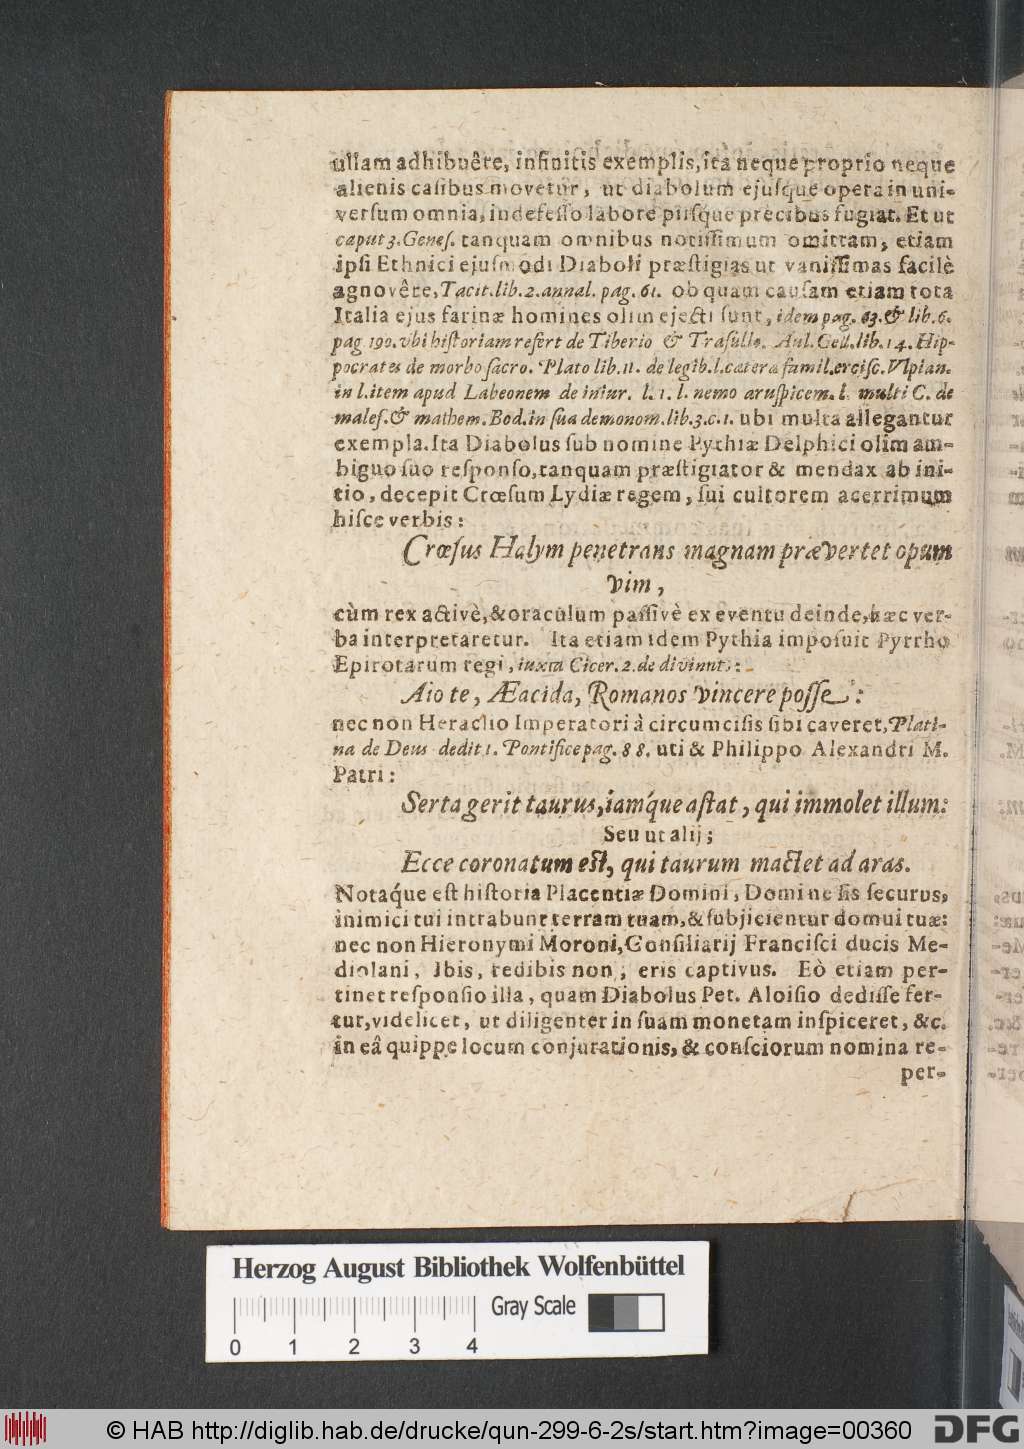 ullam adhibuêre, infinitis exemplis, ita neque proprio neque
alienis casibus movetur, ut diabolum ejusque opera in uni-
versum omnia, indefesso labore piisque precibus fugiat. Et ut
caput 3. Genes. tanquam omnibus notissimum omittam, etiam
ipsi Ethnici ejusmodi Diaboli præstigias ut vanissimas facilè
agnovêre, Tacit. lib. 2. annal. pag. 61. ob quam causam etiam tota
Italia ejus farinæ homines olim ejecti sunt, idem pag. 63. & lib. 6.
pag. 190. vbi historiam refert de Tiberio & Trasullo. Aul. Gell. lib. 14. Hip-
pocrates de morbo sacro. Plato lib. 11. de legib. l. cætera famil. ercisc. Vlpian.
in l. item apud Labeonem de iniur. l. 1. l. nemo aruspicem. l. multi C. de
malef. & mathem. Bod. in sua demonom. lib. 3. c. 1. ubi multa allegantur
exempla. Ita Diabolus sub nomine Pythiæ Delphici olim am-
biguo suo responso, tanquam præstigiator & mendax ab ini-
tio, decepit Crœsum Lydiæ regem, sui cultorem acerrimum
hisce verbis:
Crœsus Halym penetrans magnam prævertet opum
vim,
cùm rex activè, & oraculum passivè ex eventu deinde, hæc ver-
ba interpretaretur. Ita etiam idem Pythia imposuit Pyrrho
Epirotarum regi, iuxta Cicer. 2. de divinat.:
Aio te, Æacida, Romanos vincere posse:
nec non Heraclio Imperatori à circumcisis sibi caveret, Plati-
na de Deus dedit 1. Pontifice pag. 88. uti & Philippo Alexandri M.
Patri:
Serta gerit taurus, iamque astat, qui immolet illum:
Seu ut alij;
Ecce coronatum est, qui taurum mactet ad aras.
Notaque est historia Placentiæ Domini, Domine sis securus,
inimici tui intrabunt terram tuam, & subjicientur domui tuæ:
nec non Hieronymi Moroni, Consiliarij Francisci ducis Me-
diolani, Ibis, redibis non, eris captivus. Eò etiam per-
tinet responsio illa, quam Diabolus Pet. Aloisio dedisse fer-
tur, videlicet, ut diligenter in suam monetam inspiceret, &c.
in eâ quippe locum conjurationis, & consciorum nomina re-
per-
Herzog August Bibliothek Wolfenbüttel
Gray Scale
0 1 2 3 4
© HAB http://diglib.hab.de/drucke/qun-299-6-2s/start.htm?image=00360
DFG